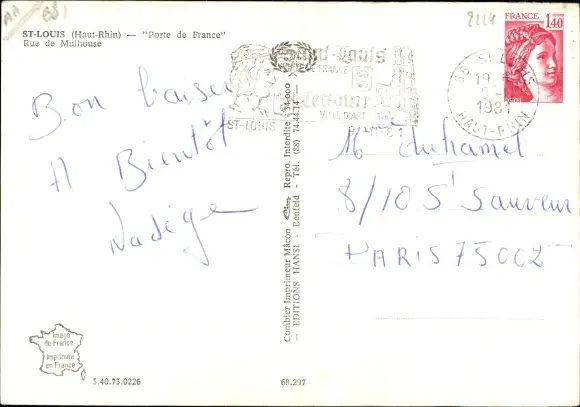 AA 681
2224
ST-LOUIS (Haut-Rhin) — "Porte de France"
Rue de Mulhouse
FRANCE
1,40
68 ST LOUIS
1981
HAUT-RHIN
St-Louis
PORTE DE FRANCE
Lectoure
VILLE D'ART
ST-LOUIS
Bon baiser
A Bientôt
Nadège
Duhamel
8/10 St Sauveur
PARIS 75002
Combier Imprimeur Mâcon Cim Repro. Interdite 34-000
— EDITIONS HANSI - Benfeld - Tél. (88) 74.44.14 —
Image
de France
Imprimée
en France
3.40.73.0226
68.297